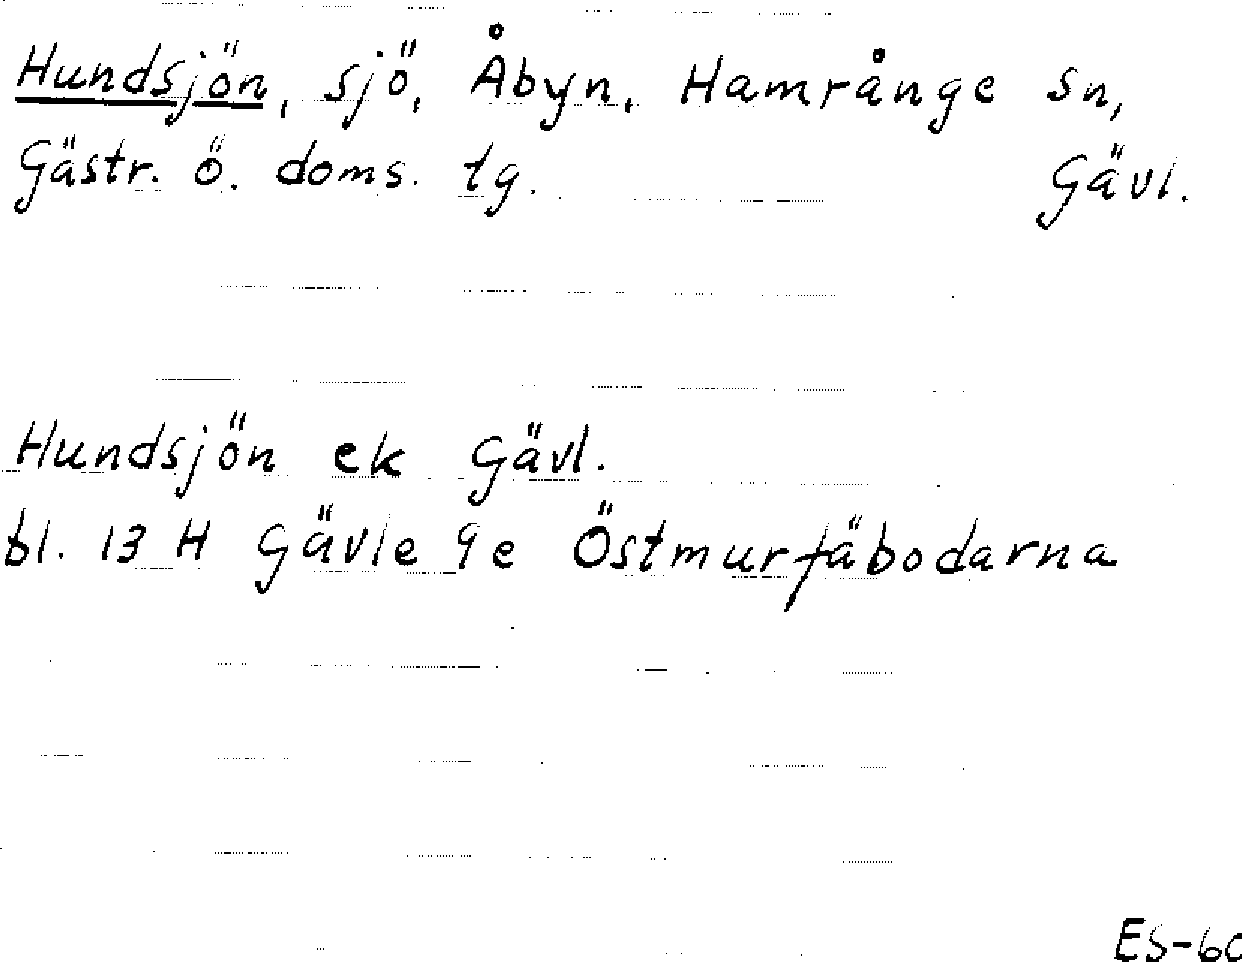 Hundsjön, sjö, Åbyn, Hamrånge sn,
Gästr. ö. doms. tg. Gävl.
Hundsjön ek Gävl.
bl. 13 H Gävle 9e Östmurfäbodarna
ES-60